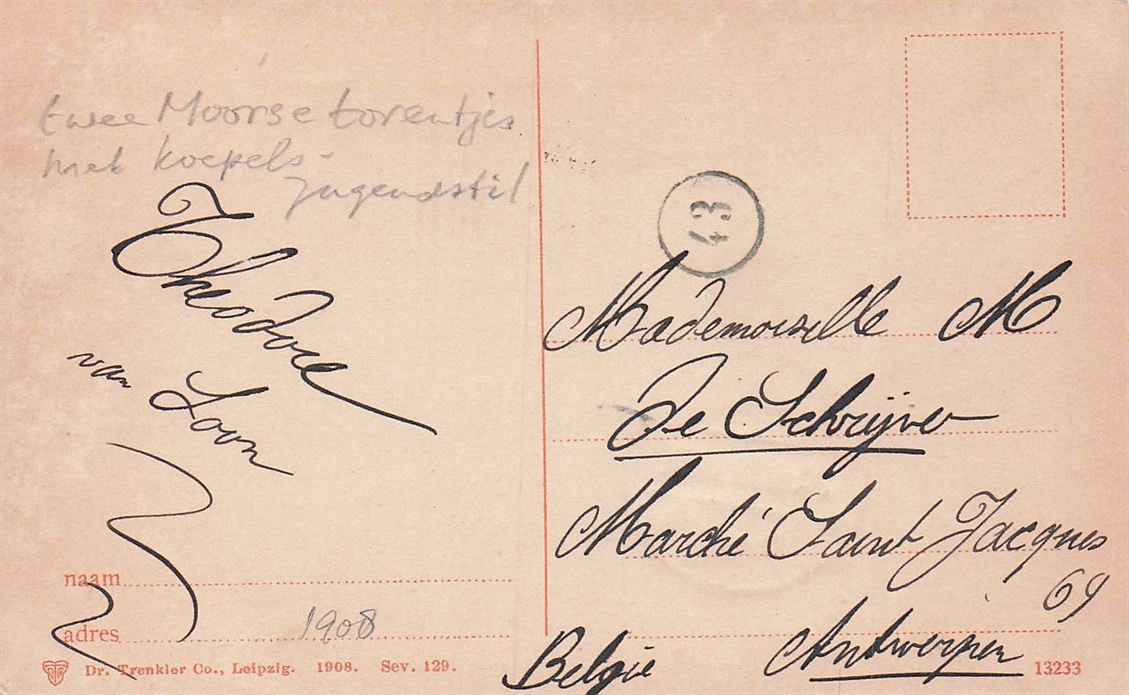 twee Moorse torentjes
met koepels -
Jugendstil
Theodore
van Loon
naam
adres
1908
Dr. Trenkler Co., Leipzig. 1908. Sev. 129.
43
Mademoiselle M
De Schrijver
Marché Saint Jacques
69
Antwerpen
Belgie
13233